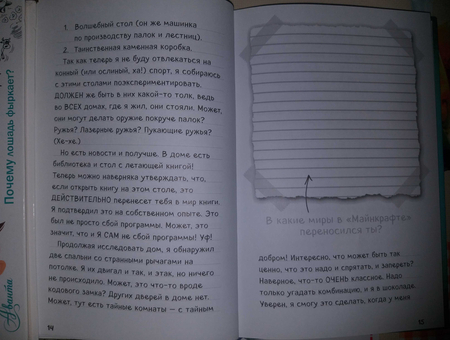 Почему лошадь фыркает?
Аванта
1. Волшебный стол (он же машинка
по производству палок и лестниц).
2. Таинственная каменная коробка.
Так как теперь я не буду отвлекаться на
конный (или ослиный, ха!) спорт, я собираюсь
с этими столами поэкспериментировать.
ДОЛЖЕН же быть в них какой-то толк, ведь
во ВСЕХ домах, где я жил, они стояли. Может,
они могут делать оружие покруче палок?
Ружья? Лазерные ружья? Пукающие ружья?
(Хе-хе.)
Но есть новости и получше. В доме есть
библиотека и стол с летающей книгой!
Теперь можно наверняка утверждать, что,
если открыть книгу на этом столе, это
ДЕЙСТВИТЕЛЬНО перенесет тебя в мир книги.
Я подтвердил это на собственном опыте. Это
был не просто сбой программы. Может, это
значит, что и Я САМ не сбой программы! Уф!
Продолжая исследовать дом, я обнаружил
две спальни со странными рычагами на
потолке. Я их двигал и так, и этак, но ничего
не происходило. Может, это что-то вроде
кодового замка? Других дверей в доме нет.
Может, тут есть тайные комнаты — с тайным
В какие миры в «Майнкрафте»
переносился ты?
добром! Интересно, что может быть так
ценно, что это надо и спрятать, и запереть?
Наверное, что-то ОЧЕНЬ классное. Надо
только угадать комбинацию, и я в шоколаде.
Уверен, я смогу это сделать, когда у меня